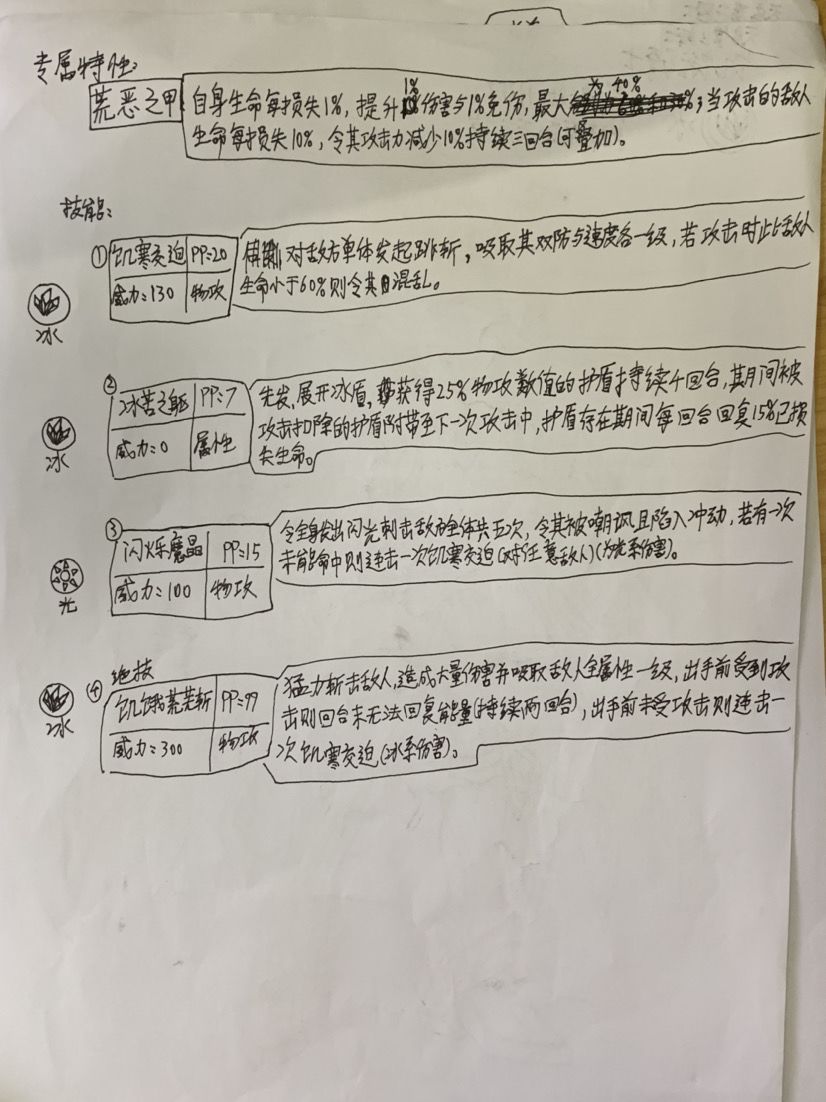 专属特性:
荒恶之甲
自身生命每损失1%,提升1%伤害与1%免伤,最大为40%;当攻击的敌人
生命每损失10%,令其攻击力减少10%持续三回合(可叠加)。
技能:
① 饥寒交迫 PP=20
威力=130 物攻
对敌方单体发起跳斩,吸取其双防与速度各一级,若攻击时此敌人
生命小于60%则令其混乱。
冰
② 冰苦之躯 PP=7
威力=0 属性
先发,展开冰盾,获得25%物攻数值的护盾持续4回合,其期间被
攻击扣除的护盾附带至下一次攻击中,护盾存在期间每回合回复15%已损
失生命。
冰
③ 闪烁魔晶 PP=15
威力=100 物攻
令全身发出闪光刺击敌方全体共五次,令其被嘲讽且陷入冲动,若有一次
未能命中则连击一次饥寒交迫(对任意敌人)(为光系伤害)。
光
绝技
④ 饥饿荒芜斩 PP=99
威力=300 物攻
猛力斩击敌人,造成大量伤害并吸取敌人全属性一级,出手前受到攻
击则回合末无法回复能量(持续两回合),出手前未受攻击则连击一
次饥寒交迫(冰系伤害)。
冰